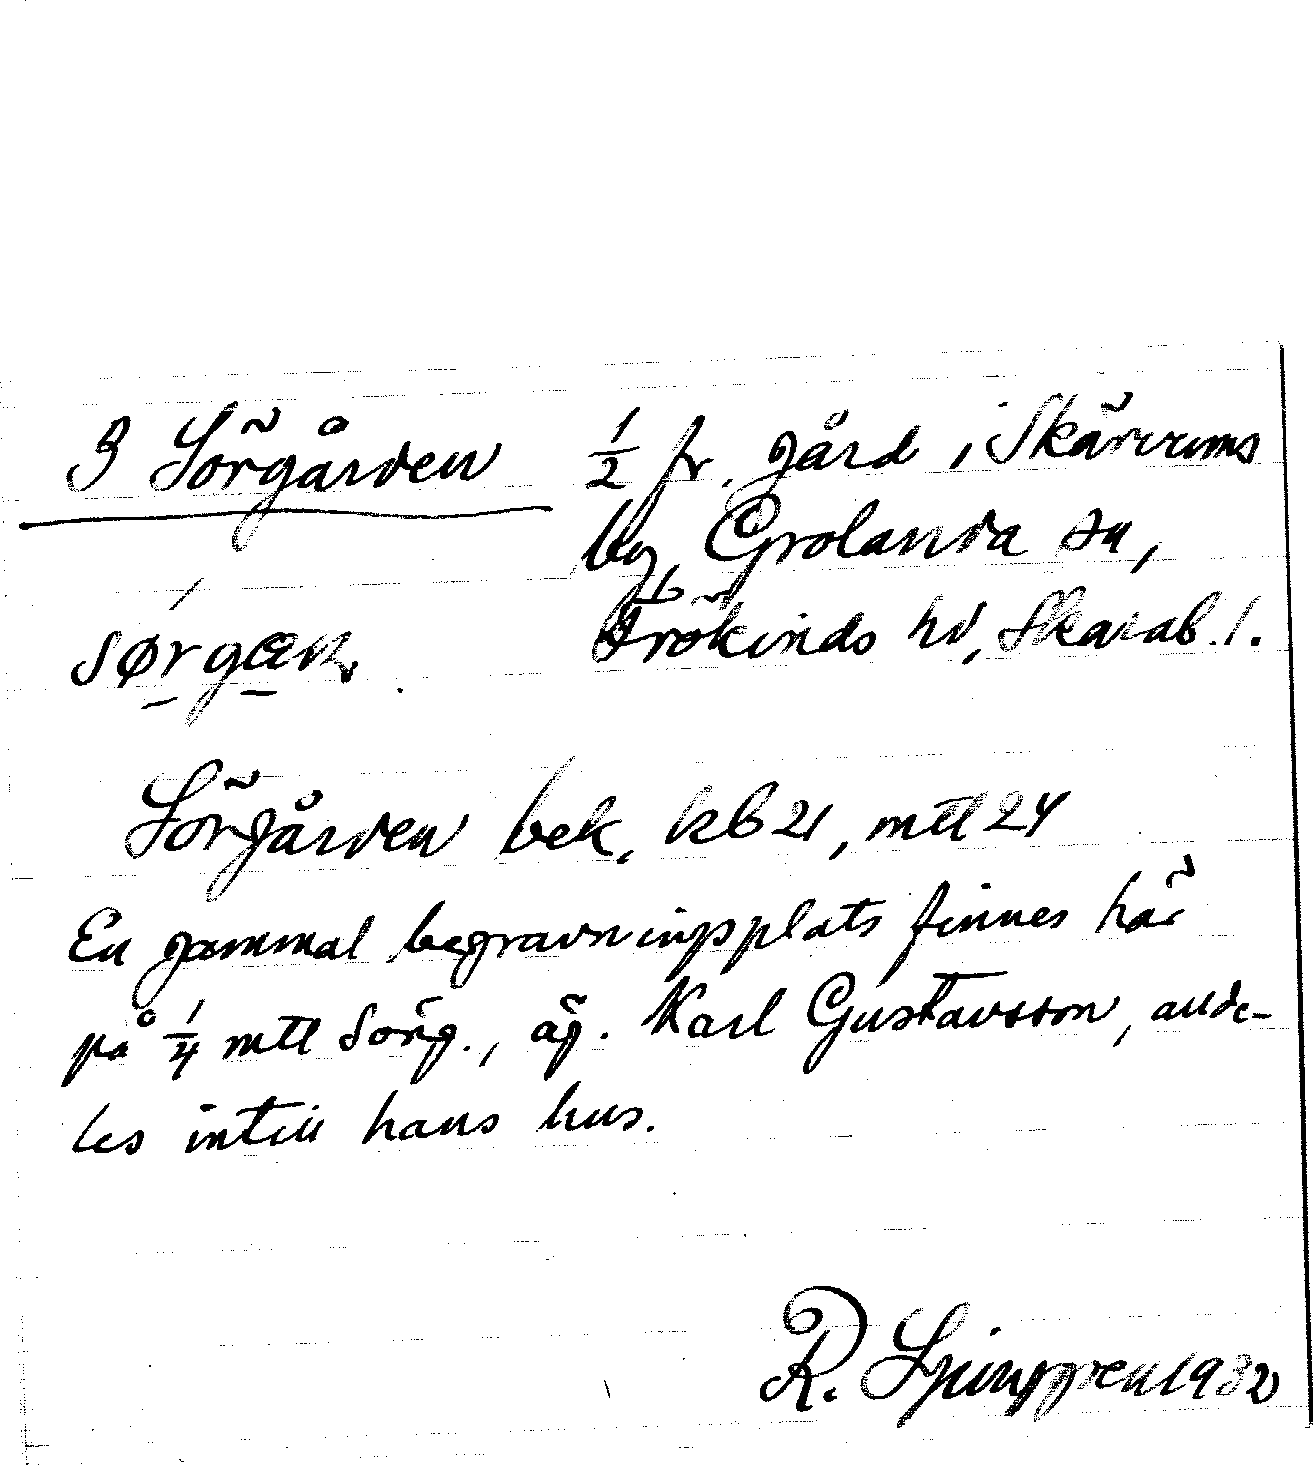 3 Sörgården
1/2 fr. gård i Skärvums
by, Grolanda sn,
Frökinds hd, Skarab. l.
sørgæn.
Sörgården bek, kb 21, mtl 24
En gammal begravningsplats finnes här
på 1/4 mtl Sörg., äg. Karl Gustavsson, alde-
les intill hans hus.
R. Ljunggren 1932